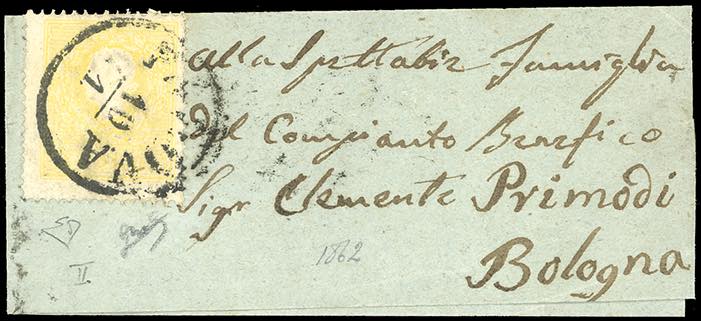 alla Spettabile Famiglia
Del Compianto Benefico
Sigr Clemente Primodi
Bologna
1862
II
10
A